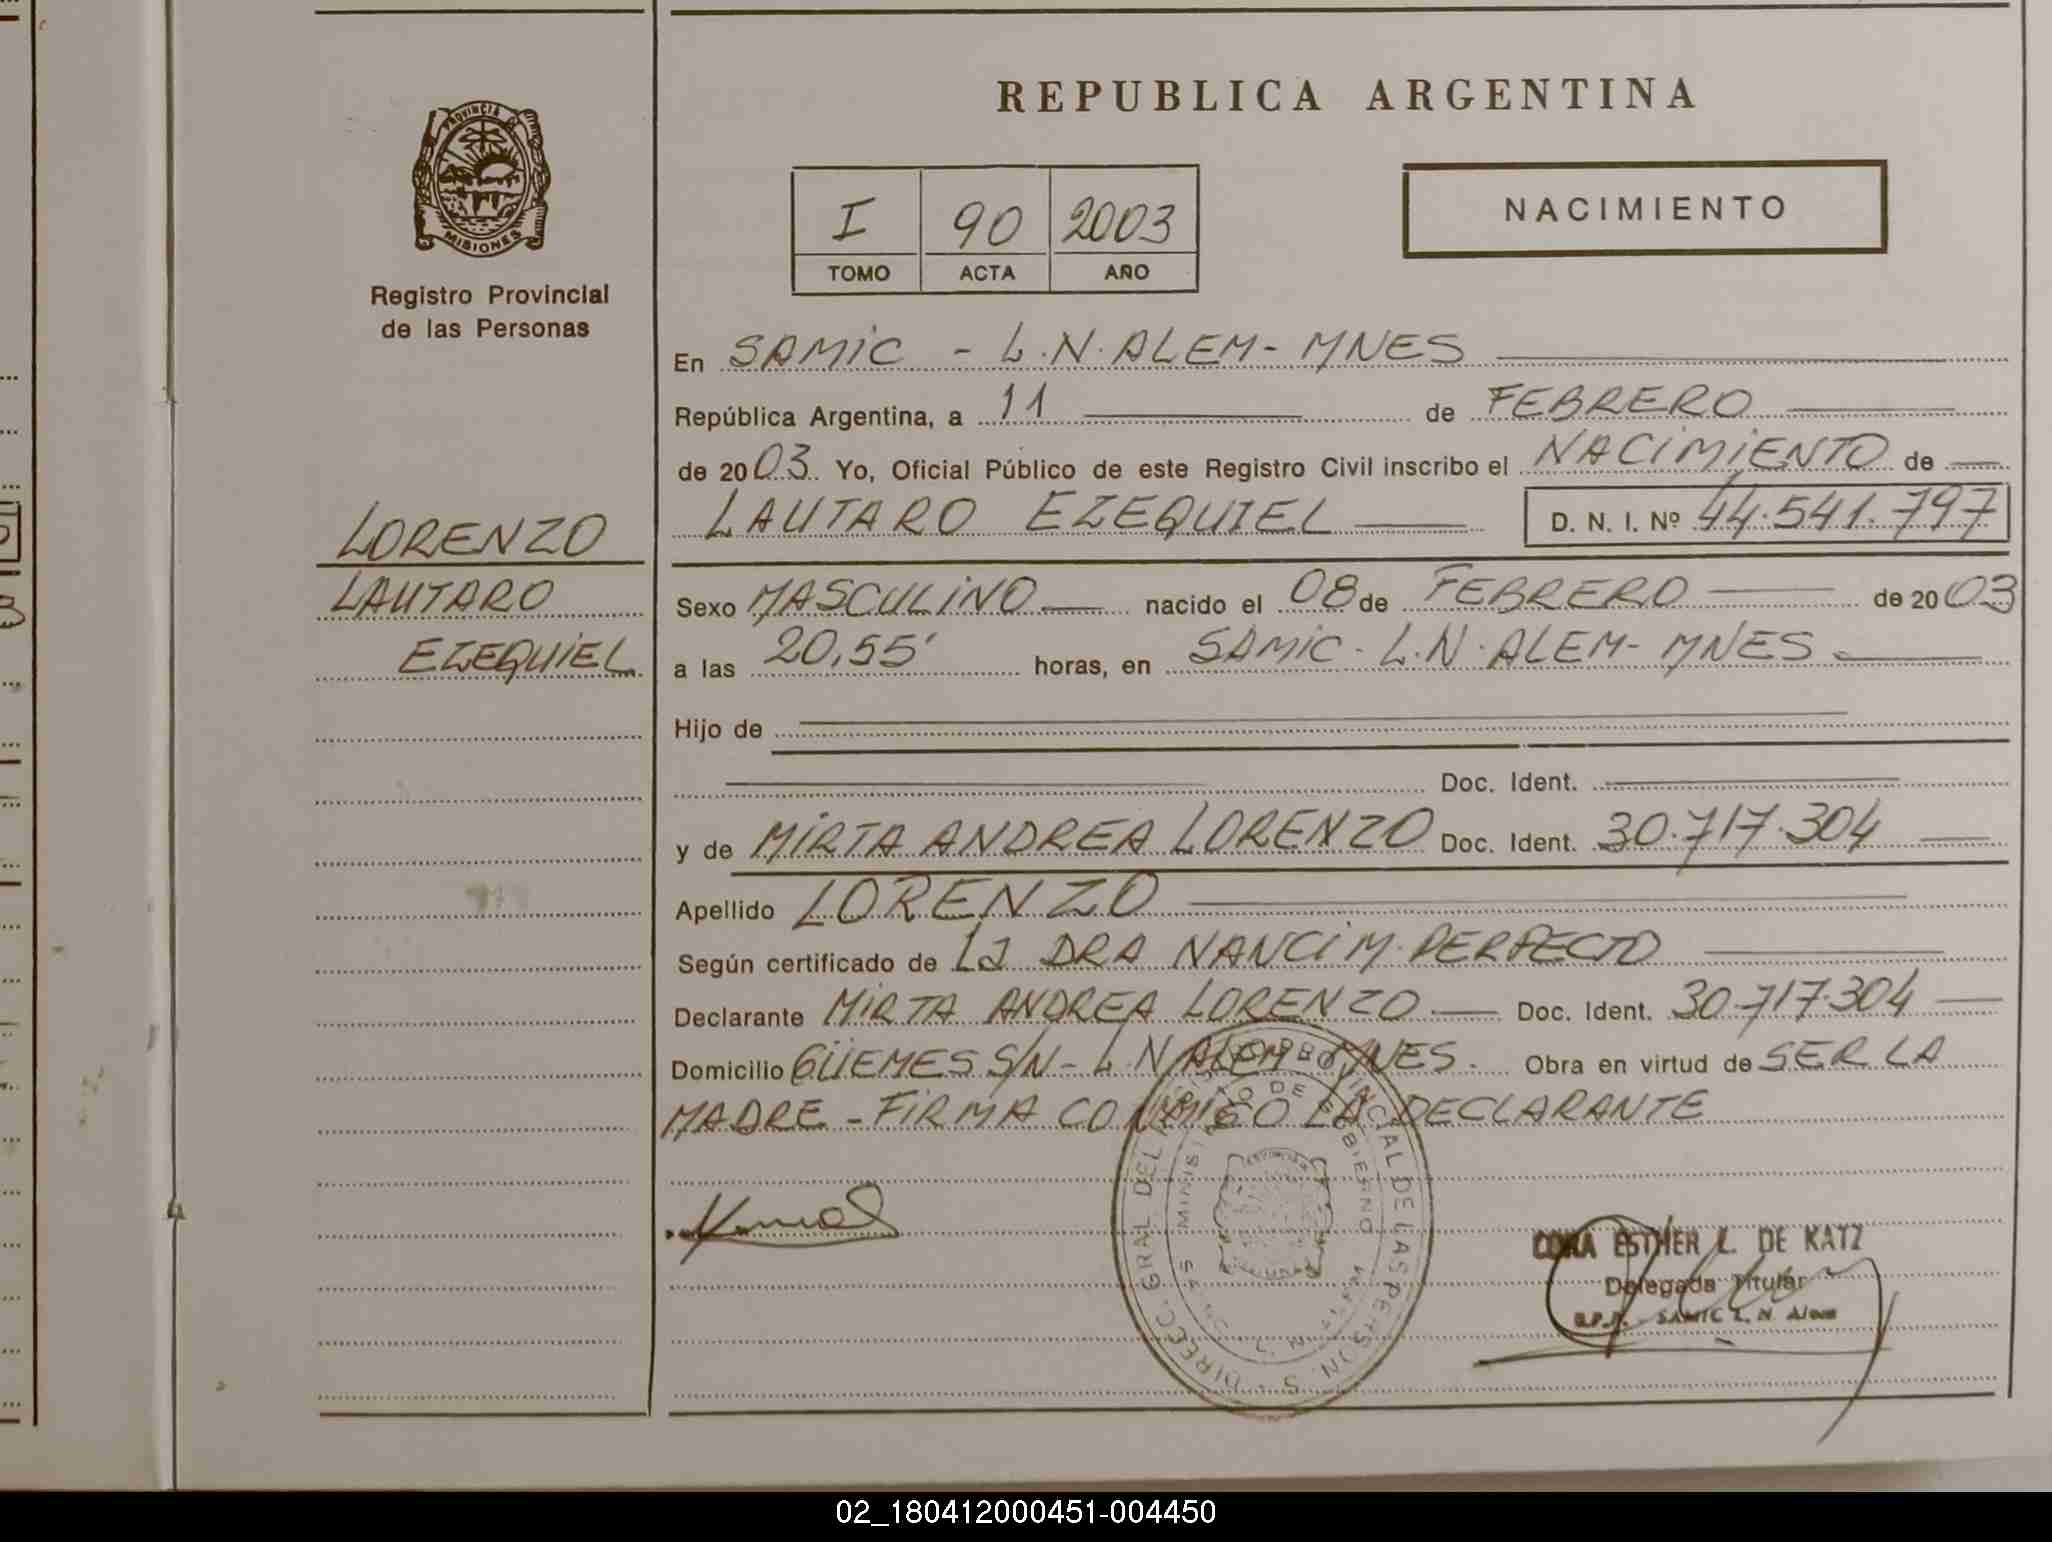 REPUBLICA ARGENTINA
PROVINCIA DE
MISIONES
Registro Provincial
de las Personas
I 90 2003
TOMO ACTA AÑO
NACIMIENTO
En SAMIC - L.N. ALEM - MNES
República Argentina, a 11 de FEBRERO
de 2003. Yo, Oficial Público de este Registro Civil inscribo el NACIMIENTO de
LAUTARO EZEQUIEL D. N. I. Nº 44.541.797
LORENZO
LAUTARO
EZEQUIEL
Sexo MASCULINO nacido el 08 de FEBRERO de 2003
a las 20,55' horas, en SAMIC - L.N. ALEM - MNES
Hijo de
Doc. Ident.
y de MIRTA ANDREA LORENZO Doc. Ident. 30.717.304
Apellido LORENZO
Según certificado de La DRA NANCI M. PERFECTO
Declarante MIRTA ANDREA LORENZO Doc. Ident. 30.717.304
Domicilio GÜEMES S/N - L.N ALEM MNES. Obra en virtud de SER LA
MADRE - FIRMA CONMIGO LA DECLARANTE
ESTHER L. DE KATZ
Delegada Titular
R.P.P. - SAMIC L. N. Alem
02_180412000451-004450